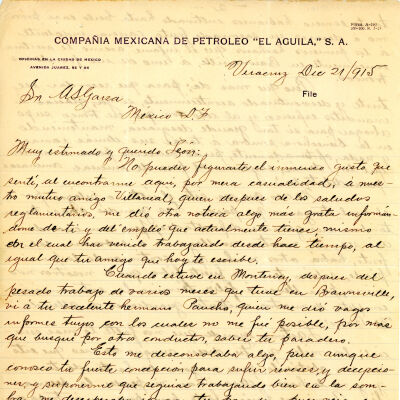 COMPAÑIA MEXICANA DE PETROLEO "EL AGUILA," S. A.
OFICINAS EN LA CIUDAD DE MEXICO
AVENIDA JUAREZ,
Veracruz Dic 21/915
File
Sr. A S Garza
Mexico D. F
Muy estimado y querido León:
No puedes figurarte el inmenso gusto que
sentí, al encontrarme aqui, por mera casualidad, a nues-
tro mutuo amigo Villarreal, quien despues de los saludos
reglamentarios, me dió otra noticia algo mas grata informán-
dome de ti y del empleo que actualmente tienes, mismo
en el cual has venido trabajando desde hace tiempo, al
igual que tu amigo que hoy te escribe.
Cuando estive en Monterrey, despues del
pesado trabajo de varios meses que tuve en Brownsville,
vi á tu excelente hermano Pancho, quien me dió vagos
informes tuyos con los cuales no me fué posible, por más
que busqué por otro conductor, saber tu paradero.
Esto me desconsolaba algo, pues aunque
conozco tu fuerte concepción para sufrir reveses, y decepcio-
nes, y suponerme que seguias trabajando bien en la som-